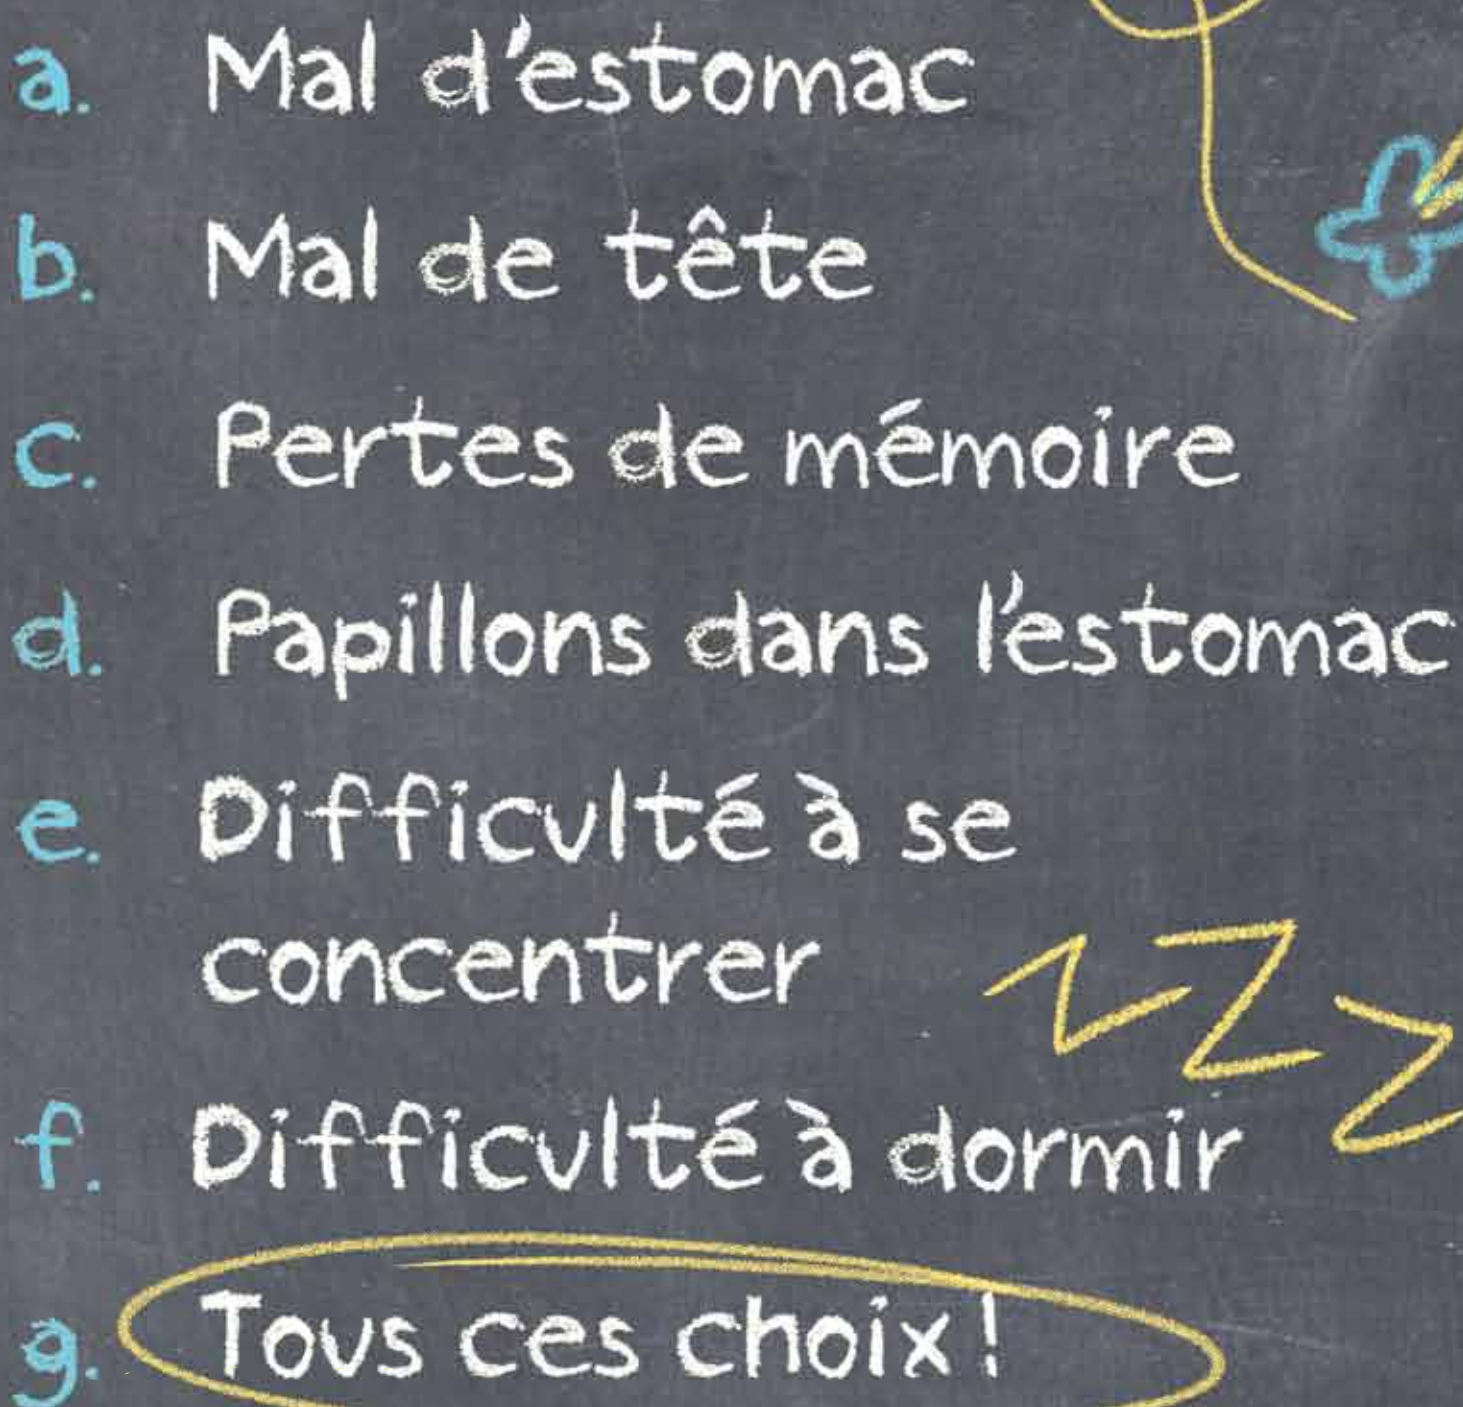 a. Mal d'estomac
b. Mal de tête
c. Pertes de mémoire
d. Papillons dans l'estomac
e. Difficulté à se
concentrer
f. Difficulté à dormir
g. Tous ces choix!